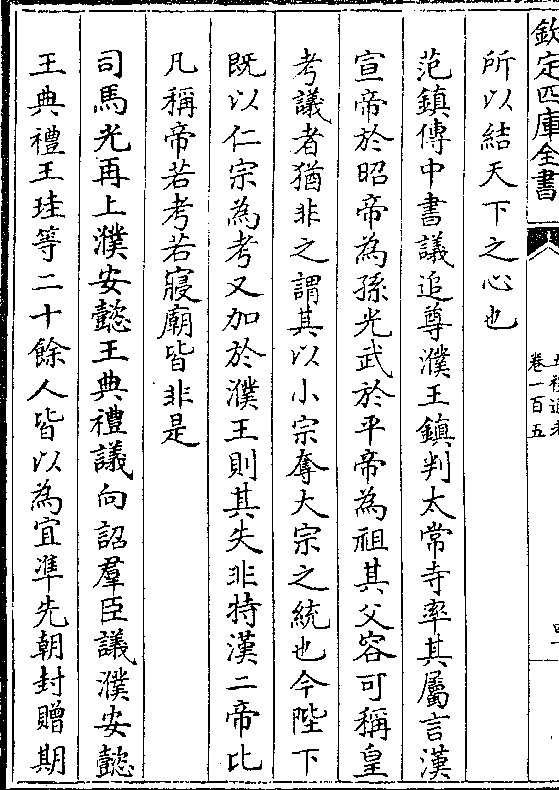 欽定四庫全書
卷一百五
所以結天下之心也
范鎮傳中書議追尊濮王鎮判太常寺率其屬言漢
宣帝於昭帝為孫光武於平帝為祖其父容可稱皇
考議者猶非之謂其以小宗奪大宗之統也今陛下
既以仁宗為考又加於濮王則其失非特漢二帝比
凡稱帝若考若寢廟皆非是
司馬光再上濮安懿王典禮議向詔羣臣議濮安懿
王典禮王珪等二十餘人皆以為宜準先朝封贈期